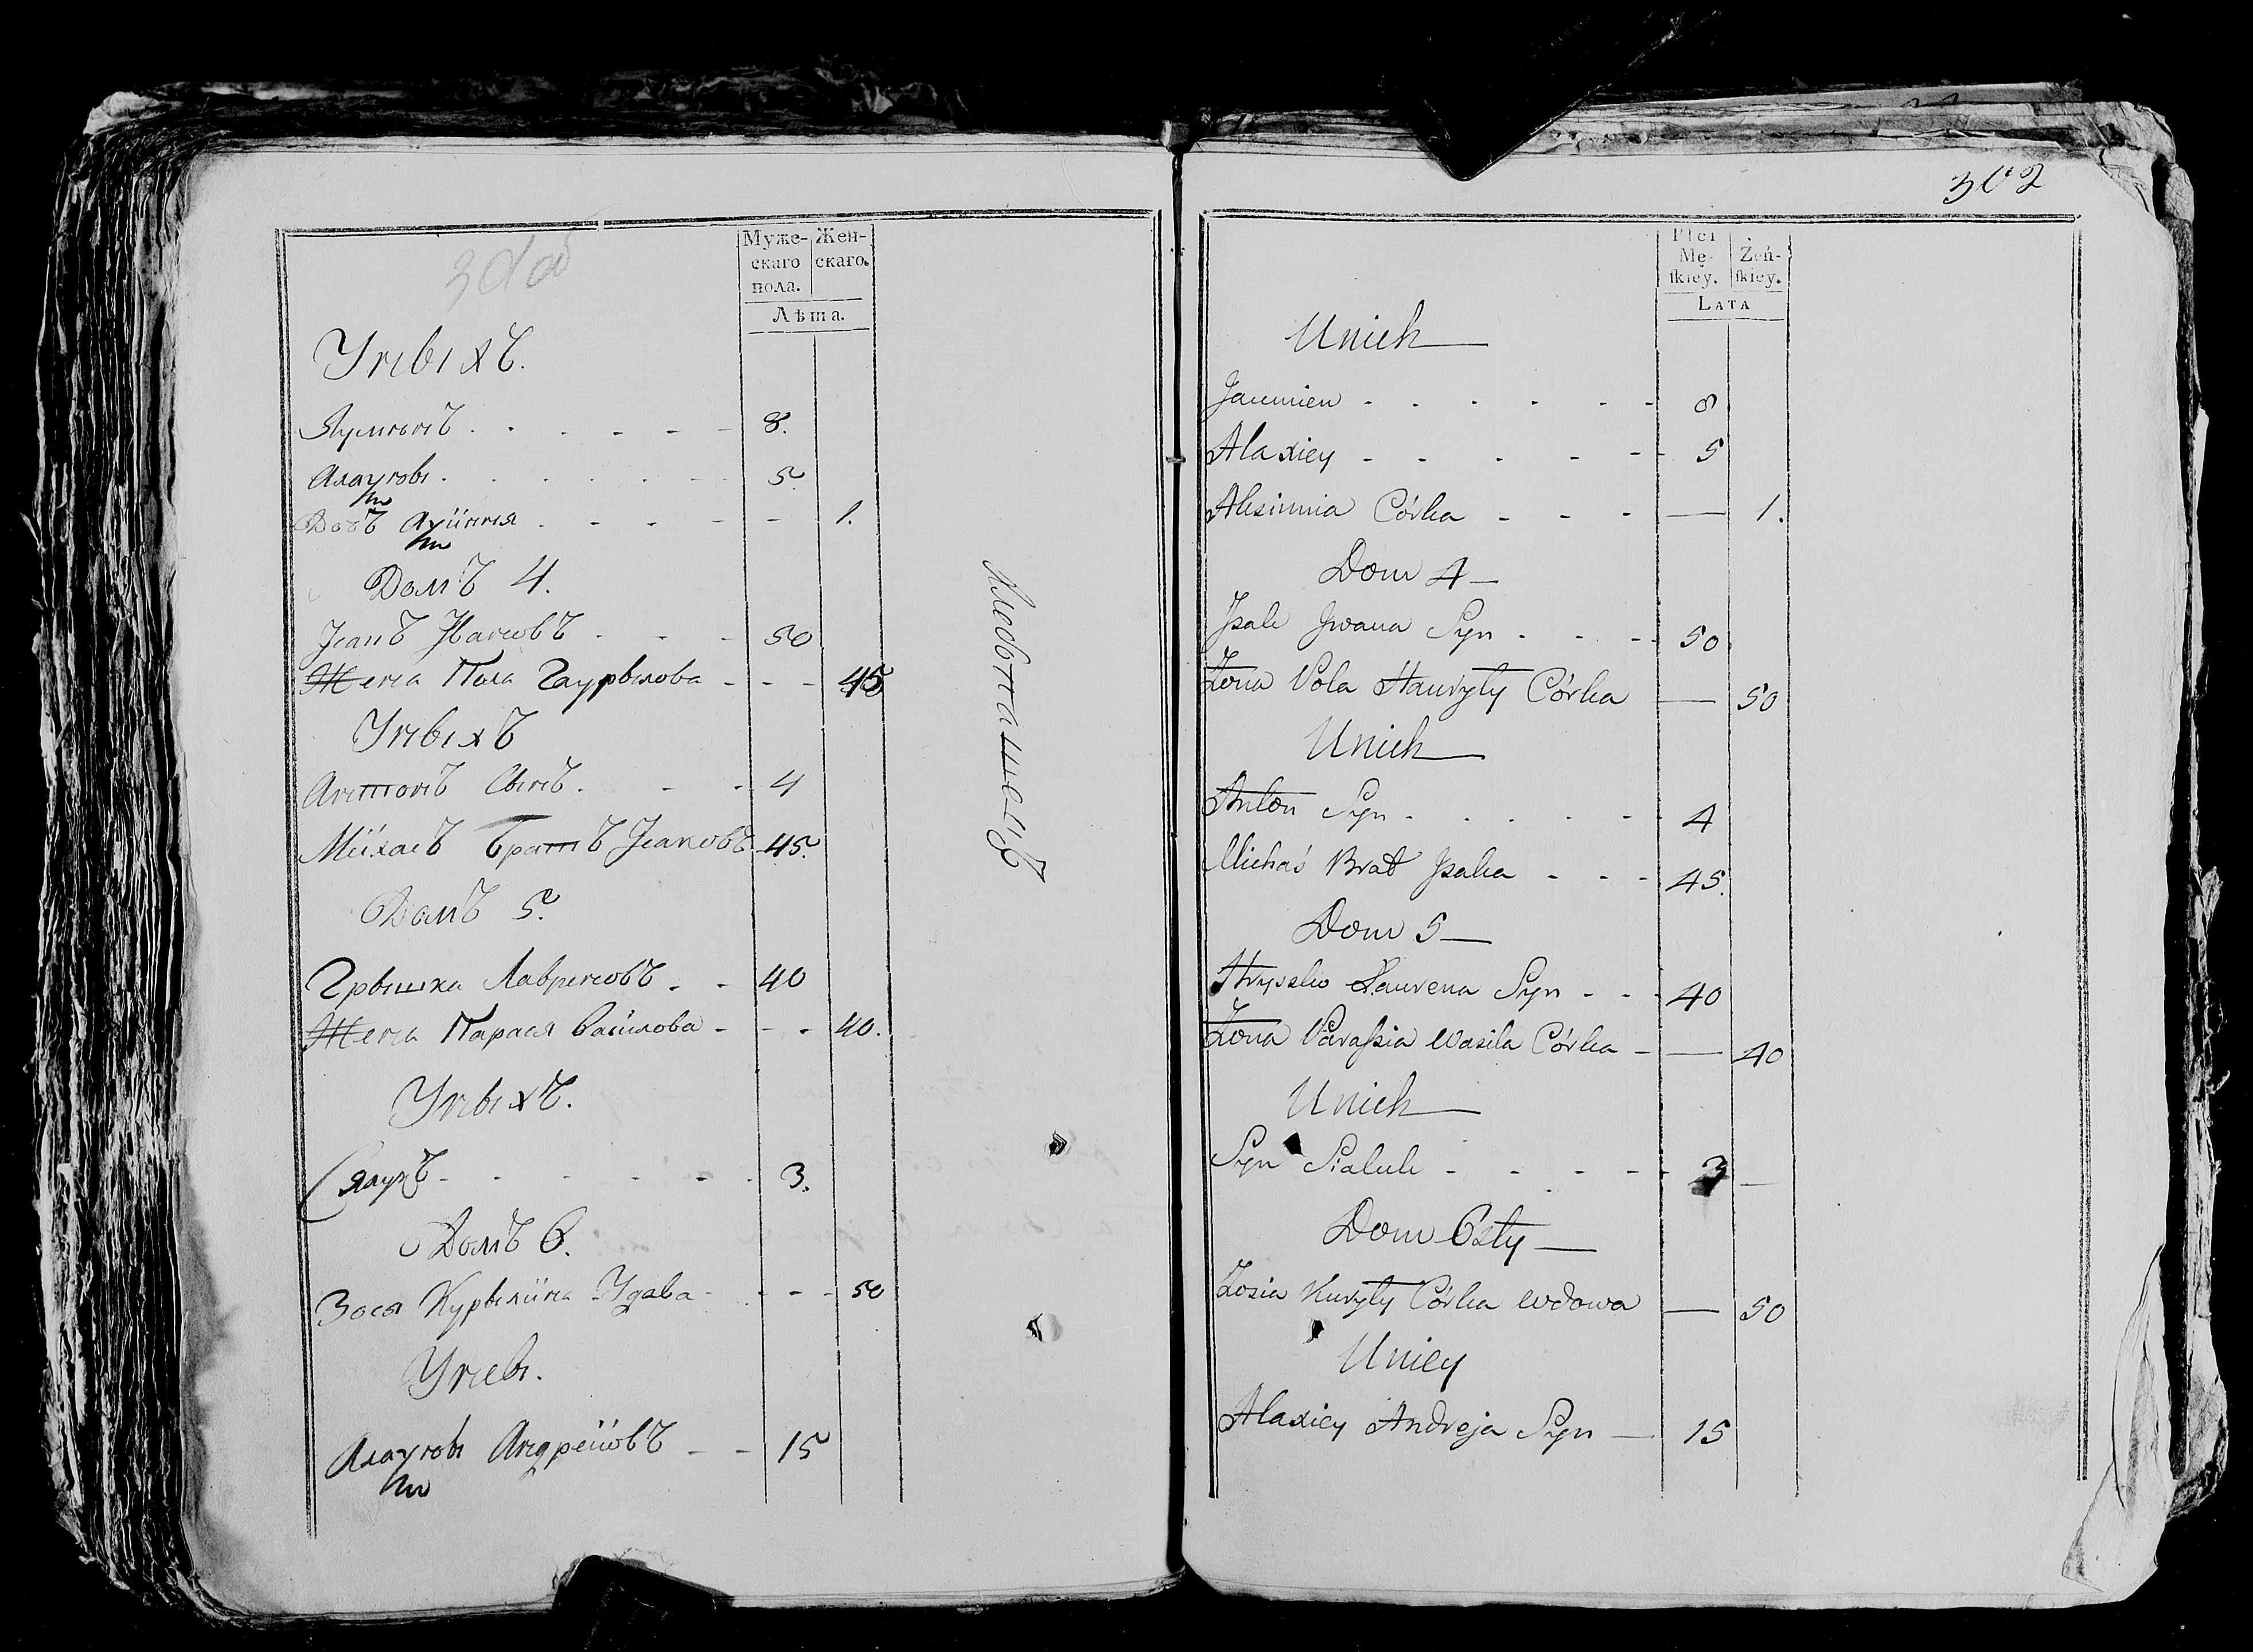 Муже-
скаго
пола.
Жен-
скаго.
Лѣта.
Унвıхъ.
Яумѣнъ 8.
5.
1.
Домъ 4.
Jсакъ Jвановъ 50
Жена Пола Гаурвıлова 45
Унвıхъ
Антонъ Сынъ. 4
Мїхасъ братъ Jсаковъ 45.
Домъ 5.
Грвıшка Лавреновъ 40
Жена Парася Васїлова 40.
Унвıхъ.
Сялукъ 3.
Домъ 6.
Зося Курвıлїна Удава 50
Унев.
Андреїовъ 15
302
Płci
Mę-
ſkiey.
Żeń-
ſkiey.
LATA
Unich
Jaumien 8
Alaxiey 5
Córka — 1.
Dom 4
Jsak Jwana Syn 50
Zona Pola Hauryły Córka — 50
Unich
Anton Syn 4
Michaś Brat Jsaka 45.
Dom 5
Hryszko Laurena Syn 40
Zona Paraſsia Wasila Córka — 40
Unich
Syn Sialuk 3 —
Dom 6sty
Zosia Kuryły Córka wdowa — 50
Uniey
Alaxiey Andreja Syn 15